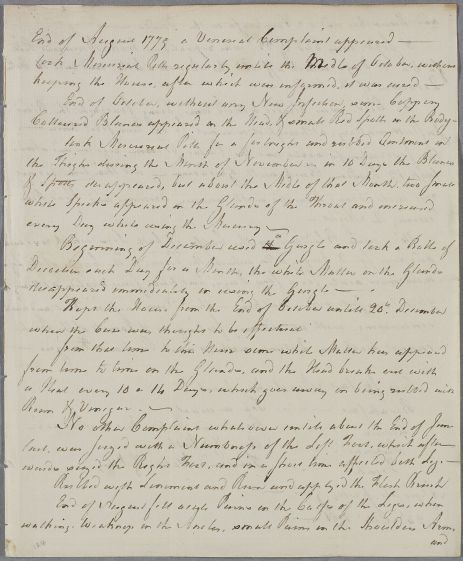 End of August 1775 a Venereal Complaint appeared —
took Mercurial Pills regularly untill the Midle of October, without
keeping the House, after which was informed, it was cured —
End of October, without any New Infection, some Coppery
Coulloured Blanes appeared on the Head, & small Red Spotts on the Body —
took Mercurial Pills for a fortnight and rubbed Ointment on
the Thighs during the Month of November — in 10 Days the Blanes
& Spotts disappeared, but about the Midle of that Month, two small
white Specks appeared on the Glands of the Throat and increased
every Day while using the Mercury —
Beginning of December used a Gargle and took a Bottle of
Decoction each Day for a Month, the white Matter on the Glands
disappeared immediately on using the Gargle —
Kept the House from the End of October untill 20th. December
when the Cure was thought to be effectual
from that time to this Hour some white Matter has appeared
from time to time on the Glands, and the Head breaks out with
a Heat every 10 a 14 Days, which goes away on being rubbed with
Rum & Vinegar —
No other Complaint whatsoever untill about the End of June
last, was seized with a Numbness of the Left Foot, which after-
wards seized the Right Foot, and in a short time affected both Legs —
Rubbed with Liniment and Rum and applyed the Flesh Brush
End of August felt acute Pains in the Calfs of the Legs, when
walking, Weakness in the Ancles, small Pains in the Shoulders Arms,
and